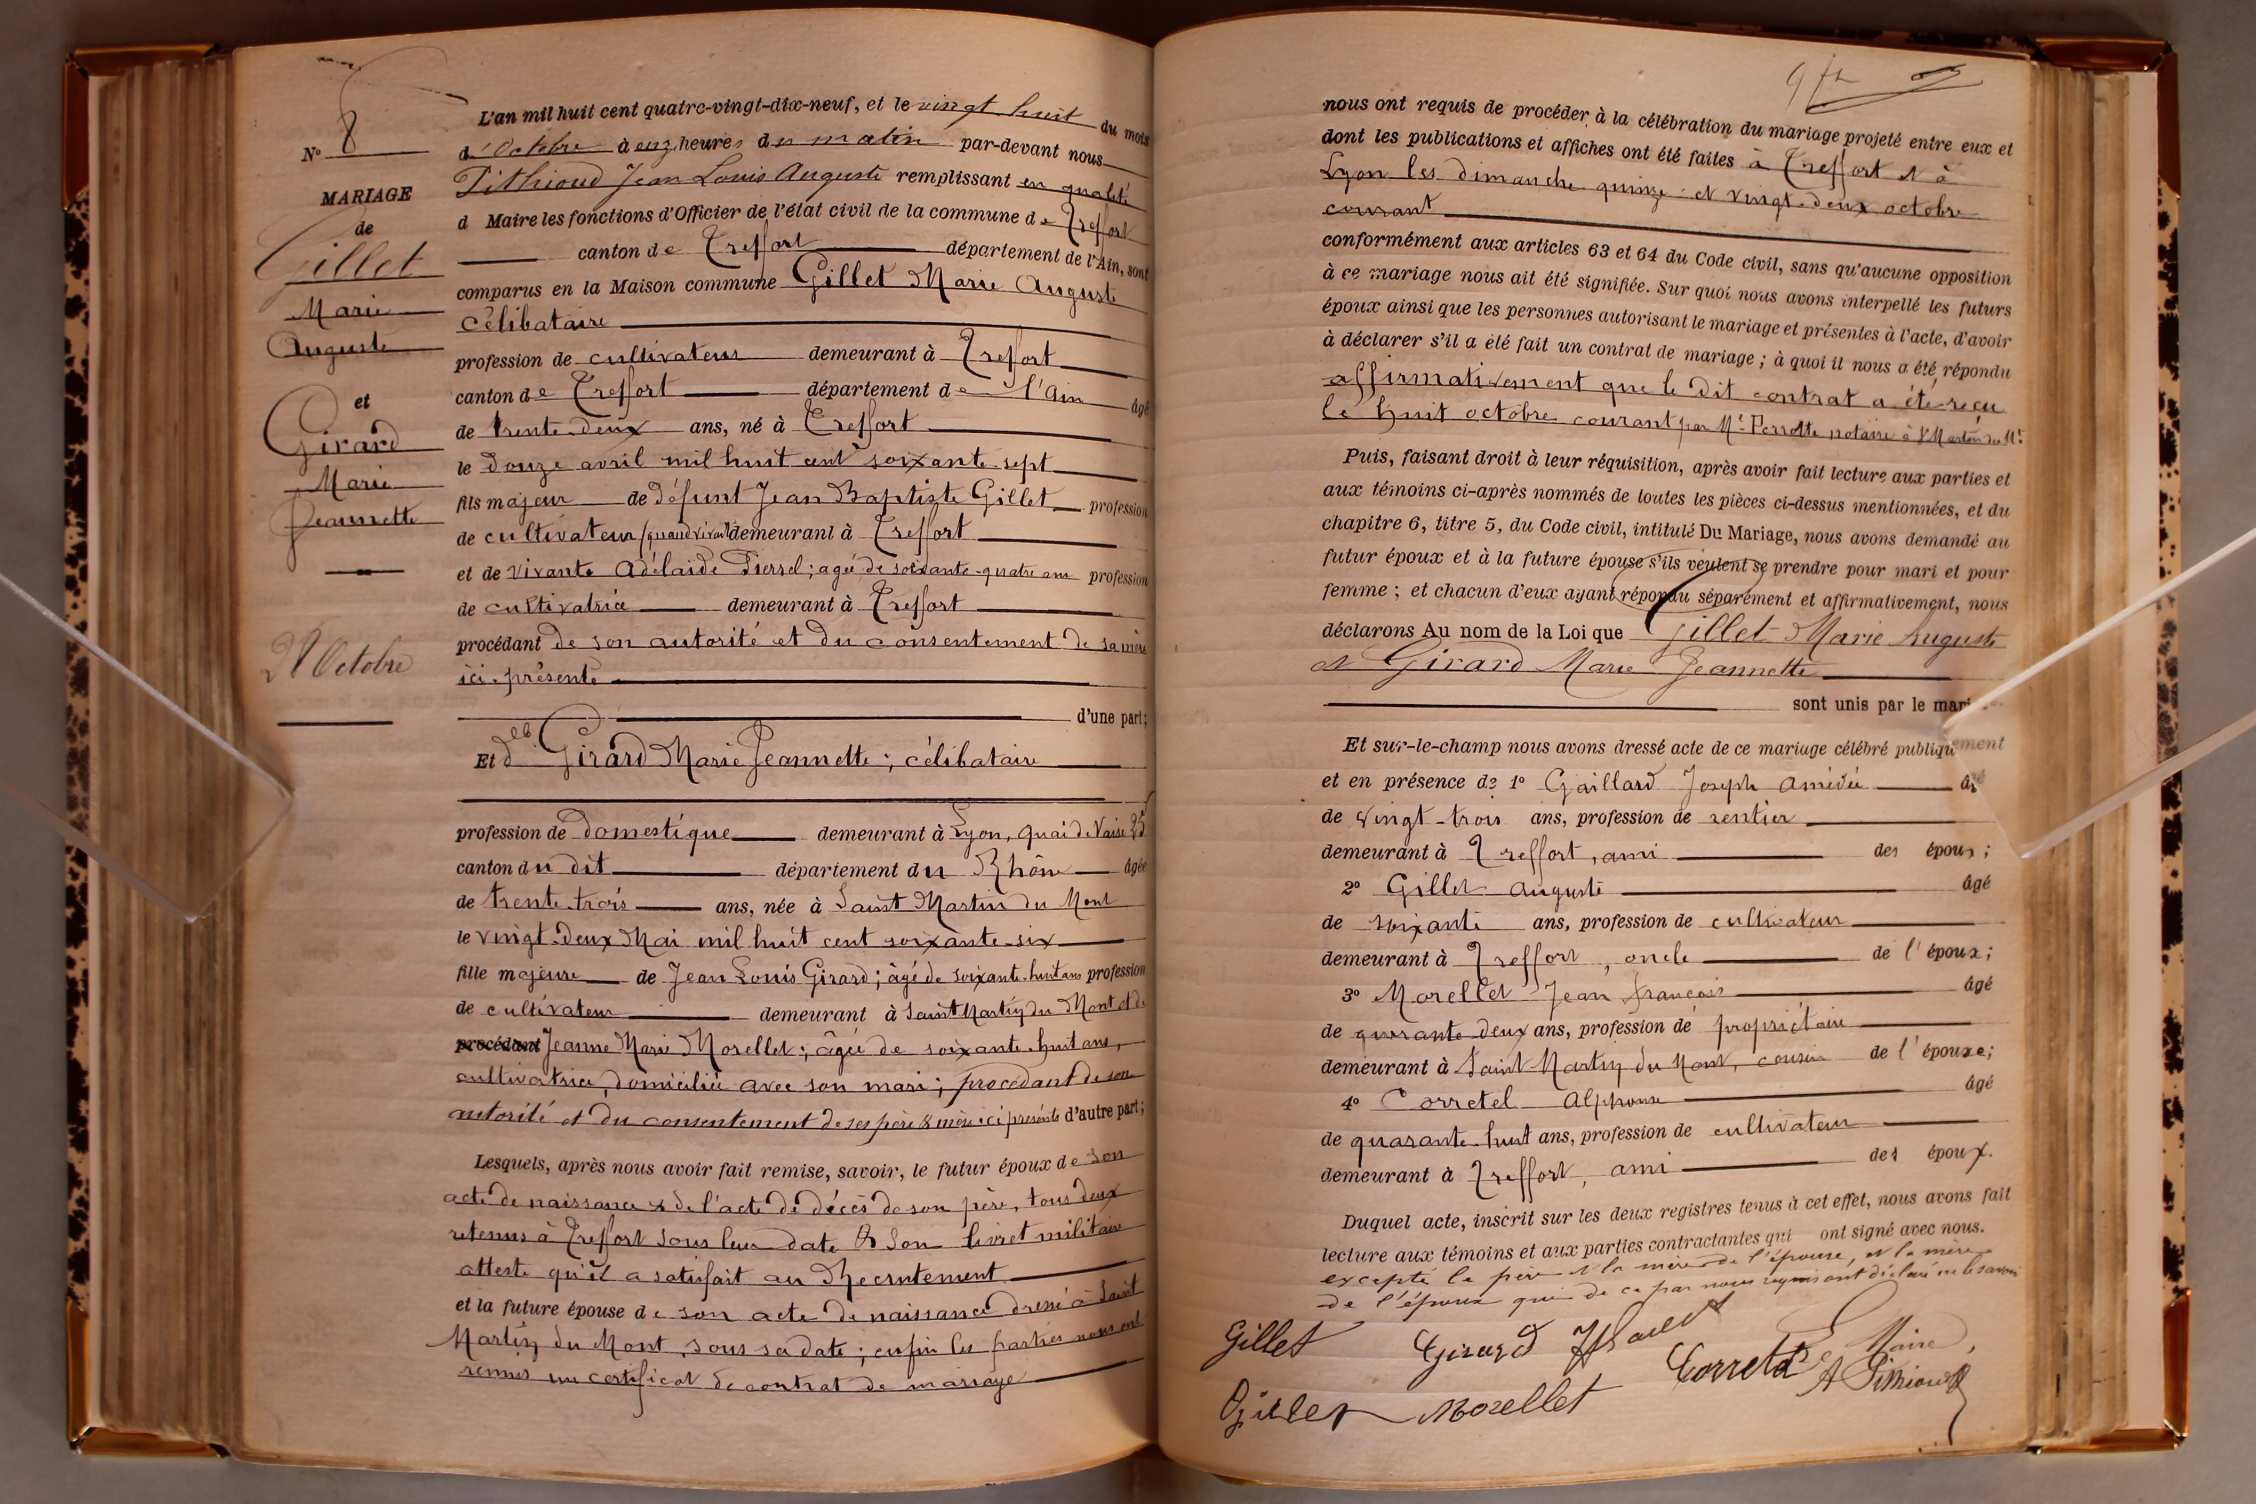 N° 8
MARIAGE
de
Gillet
Marie
Auguste
et
Girard
Marie
Jeannette
28 Octobre
L'an mil huit cent quatre-vingt-dix-neuf, et le vingt huit du mois
d'Octobre à onze heures du matin par-devant nous
Pithioud Jean Louis Auguste remplissant en qualité
d Maire les fonctions d'Officier de l'état civil de la commune de Treffort
canton de Treffort département de l'Ain, sont
comparus en la Maison commune Gillet Marie Auguste
célibataire
profession de cultivateur demeurant à Treffort
canton de Treffort département de l'Ain âgé
de trente-deux ans, né à Treffort
le douze avril mil huit cent soixante-sept
fils majeur de défunt Jean Baptiste Gillet profession
de cultivateur (quand vivait) demeurant à Treffort
et de vivante Adélaïde Pierrel; agée de soixante-quatre ans profession
de cultivatrice demeurant à Treffort
procédant de son autorité et du consentement de sa mère
ici présente
d'une part;
Et dlle Girard Marie Jeannette; célibataire
profession de domestique demeurant à Lyon, quai de Vaise 25
canton du dit département du Rhône âgée
de trente-trois ans, née à Saint Martin du Mont
le vingt-deux Mai mil huit cent soixante-six
fille majeure de Jean Louis Girard; âgé de soixante-huit ans profession
de cultivateur demeurant à Saint Martin du Mont et de
procédant Jeanne Marie Morellet; âgée de soixante-huit ans,
cultivatrice, domiciliée avec son mari; procédant de son
autorité et du consentement de ses père & mère ici présents d'autre part;
Lesquels, après nous avoir fait remise, savoir, le futur époux de son
acte de naissance & de l'acte de décès de son père, tous deux
retenus à Treffort sous leur date & Son livret militaire
atteste qu'il a satisfait au Recrutement
et la future épouse de son acte de naissance dressé à Saint
Martin du Mont sous sa date; enfin les parties nous ont
remis un certificat de contrat de mariage
nous ont requis de procéder à la célébration du mariage projeté entre eux et
dont les publications et affiches ont été faites à Treffort et à
Lyon les dimanche quinze et vingt-deux octobre
courant
conformément aux articles 63 et 64 du Code civil, sans qu'aucune opposition
à ce mariage nous ait été signifiée. Sur quoi nous avons interpellé les futurs
époux ainsi que les personnes autorisant le mariage et présentes à l'acte, d'avoir
à déclarer s'il a été fait un contrat de mariage; à quoi il nous a été répondu
affirmativement que le dit contrat a été reçu
le huit octobre courant par Me Perrotte notaire à St Martin du Mt
Puis, faisant droit à leur réquisition, après avoir fait lecture aux parties et
aux témoins ci-après nommés de toutes les pièces ci-dessus mentionnées, et du
chapitre 6, titre 5, du Code civil, intitulé Du Mariage, nous avons demandé au
futur époux et à la future épouse s'ils veulent se prendre pour mari et pour
femme; et chacun d'eux ayant répondu séparément et affirmativement, nous
déclarons Au nom de la Loi que Gillet Marie Auguste
et Girard Marie Jeannette
sont unis par le mari
Et sur-le-champ nous avons dressé acte de ce mariage célébré publiquement
et en présence de 1° Gaillard Joseph Amédée âgé
de vingt-trois ans, profession de rentier
demeurant à Treffort, ami des époux;
2° Gillet Auguste âgé
de soixante ans, profession de cultivateur
demeurant à Treffort, oncle de l'époux;
3° Morellet Jean François âgé
de quarante-deux ans, profession de propriétaire
demeurant à Saint Martin du Mont, cousin de l'épouse;
4° Corretel Alphonse âgé
de quarante-huit ans, profession de cultivateur
demeurant à Treffort, ami des époux.
Duquel acte, inscrit sur les deux registres tenus à cet effet, nous avons fait
lecture aux témoins et aux parties contractantes qui ont signé avec nous.
excepté le père et la mère de l'épouse, et la mère
de l'époux qui de ce par nous requis ont déclaré ne le savoir
Gillet Girard
Corretel Le Maire,
A Pithioud
Gillet Morellet